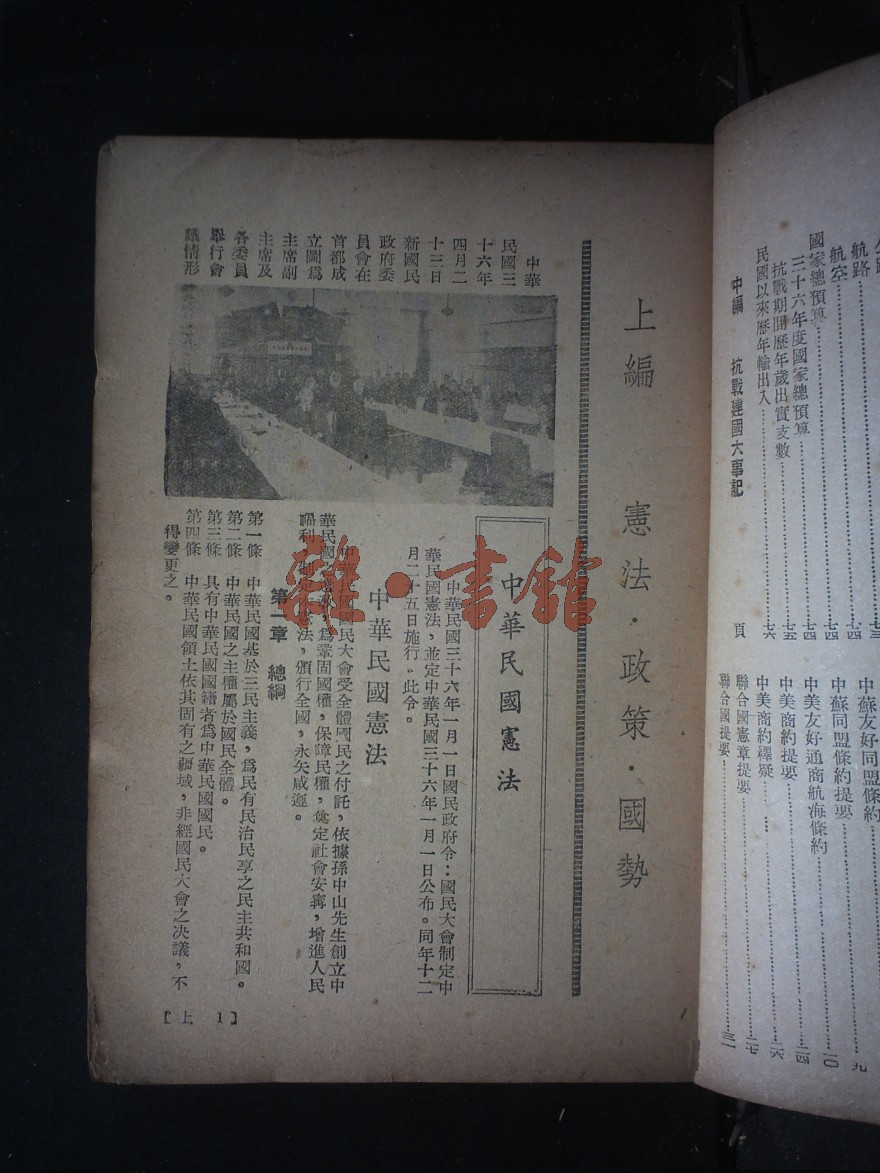 國家總預算
三十六年度國家總預算……七四
抗戰期間歷年歲出實支數……七五
民國以來歷年輸出入……七六
航路……七三
航空……七四
中編 抗戰建國大事記 頁
中蘇友好同盟條約……九
中蘇同盟條約提要……二〇
中美友好通商航海條約……二四
中美商約提要……二六
中美商約釋疑……二七
聯合國憲章提要
聯合國提要……三一
上編 憲法·政策·國勢
中華
民國三
十六年
四月二
十三日
新國民
政府委
員會在
首都成
立圖為
主席副
主席及
各委員
舉行會
議情形
中華民國憲法
中華民國三十六年一月一日國民政府令：國民大會制定中
華民國憲法，並定中華民國三十六年一月一日公布。同年十二
月二十五日施行。此令。
中華民國憲法
中華民國國民大會受全體國民之付託，依據孫中山先生創立中
華民國之遺教，為鞏固國權，保障民權，奠定社會安寧，增進人民
福利，制定本憲法，頒行全國，永矢咸遵。
第一章 總綱
第一條 中華民國基於三民主義，為民有民治民享之民主共和國。
第二條 中華民國之主權屬於國民全體。
第三條 具有中華民國國籍者為中華民國國民。
第四條 中華民國領土依其固有之疆域，非經國民大會之決議，不
得變更之。
【上 1】
雜·書館